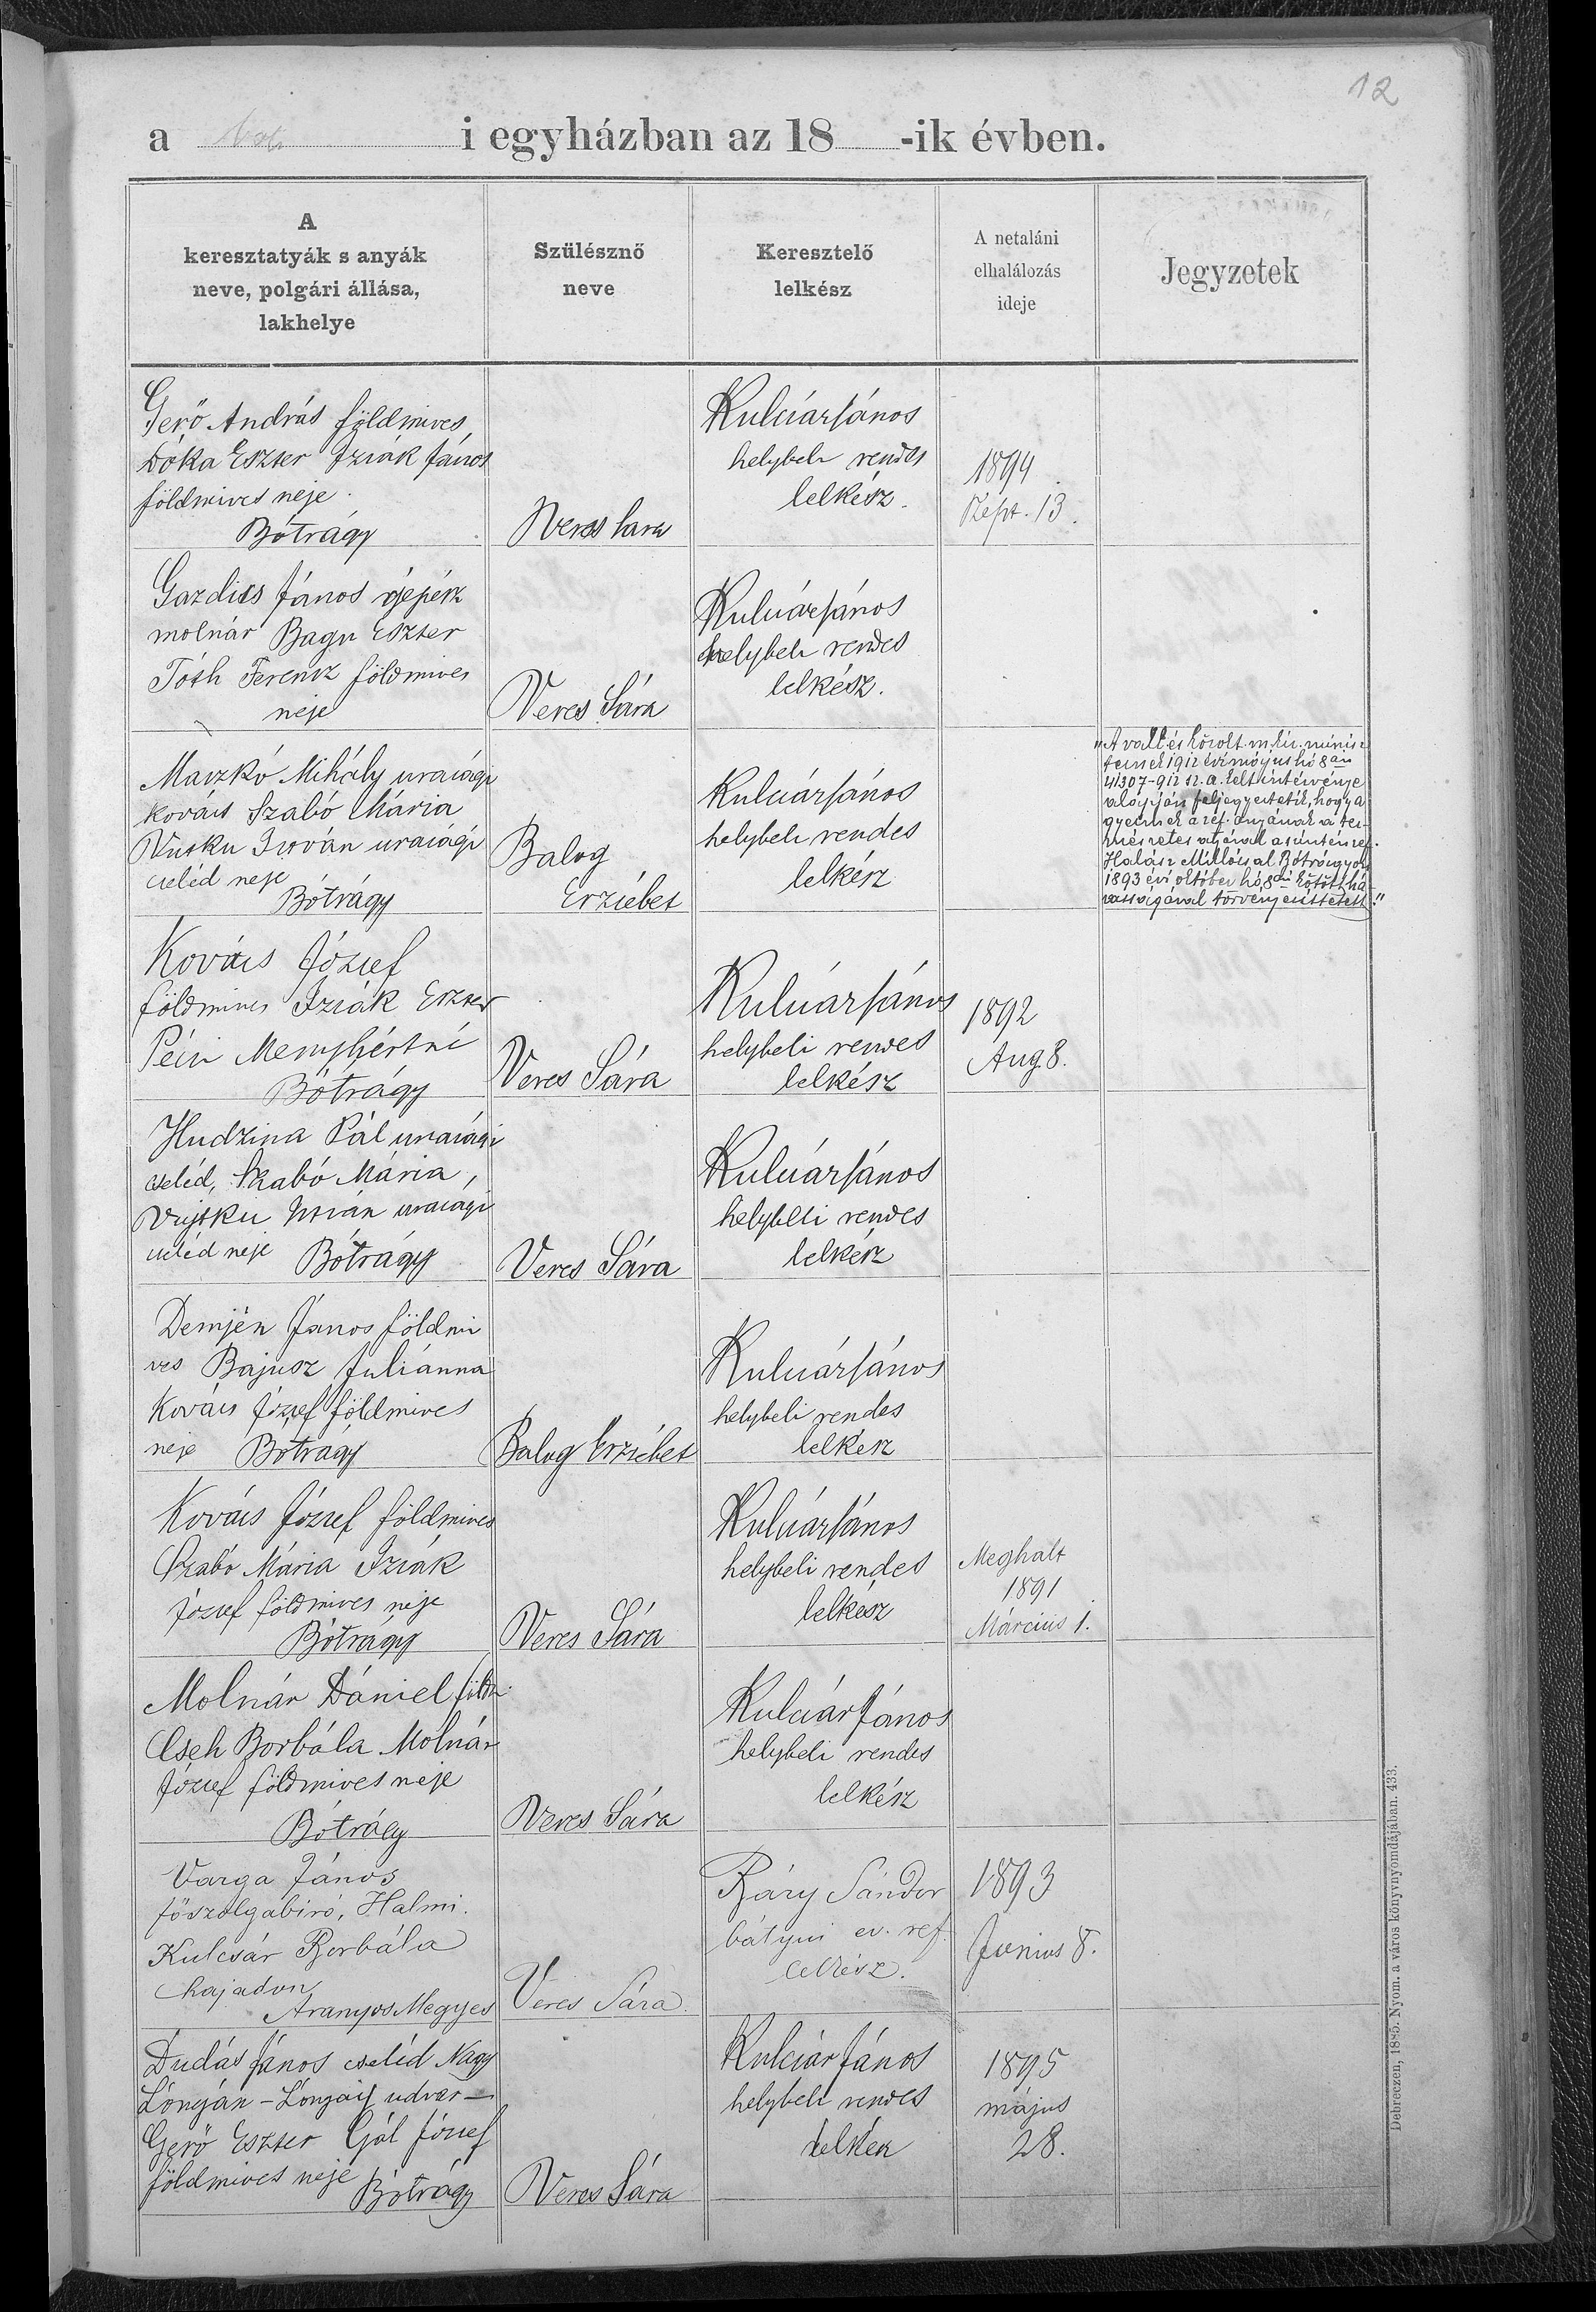 12
a Bót i egyházban az 18 -ik évben.
A
keresztatyák s anyák
neve, polgári állása,
lakhelye
Szülésznő
neve
Keresztelő
lelkész
A netaláni
elhalálozás
ideje
Jegyzetek
Gerő András földmives
Dóka Eszter Izsák János
földmives neje
Bótrágy
Veres Sara
Kulcsár János
helybeli rendes
lelkész.
1894
Szept. 13.
Gazdics János gépész
molnár Bagu Eszter
Tóth Ferencz földmives
neje
Veres Sára
Kulcsár János
helybeli rendes
lelkész.
Maczkó Mihály urasági
kovács Szabó Mária
Vutsku István urasági
cseléd neje
Bótrágy
Balog
Erzsébet
Kulcsár János
helybeli rendes
lelkész
"A vall és közokt. m. kir. minisz
ternek 1912 évi május hó 8án
41307-912 sz. a. kelt intézvénye
alapján feljegyeztetik, hogy a
gyermek a ref. anyának a ter-
mészetes atyával a szintén ref.
Halász Miklóssal Bótrágyon
1893 évi október hó 8án kötött há
zasságával törvényesíttetett."
Kovács József
földmives Izsák Eszter
Pécsi Menyhértné
Bótrágy
Veres Sára
Kulcsár János
helybeli rendes
lelkész
1892
Aug 8.
Hudzina Pál urasági
cseléd, Szabó Mária,
Vujtku István urasági
cseléd neje Bótrágy
Veres Sára
Kulcsár János
helybeli rendes
lelkész
Demjén János földmi
ves Bajusz Juliánna
Kovács József földmives
neje Bótrágy
Balog Erzsébet
Kulcsár János
helybeli rendes
lelkész
Kovács József földmives
Szabó Mária Izsák
József földmives neje
Bótrágy
Veres Sára
Kulcsár János
helybeli rendes
lelkész
Meghalt
1891
Március 1.
Molnár Dániel földm.
Cseh Borbála Molnár
József földmives neje
Bótrágy
Veres Sára
Kulcsár János
helybeli rendes
lelkész
Varga János
főszolgabiró, Halmi.
Kulcsár Borbála
hajadon
Aranyos Megyes
Veres Sára.
Ráry Sándor
bátyui ev. ref.
lelkész.
1893
Junius 8.
Dudás János cseléd Nagy
Lónyán - Lónyay udvar -
Gerő Eszter Gál József
földmives neje Bótrágy
Veres Sára
Kulcsár János
helybeli rendes
lelkész
1895
május
28.
Debreczen, 1885. Nyom. a város könyvnyomdájában. 433.